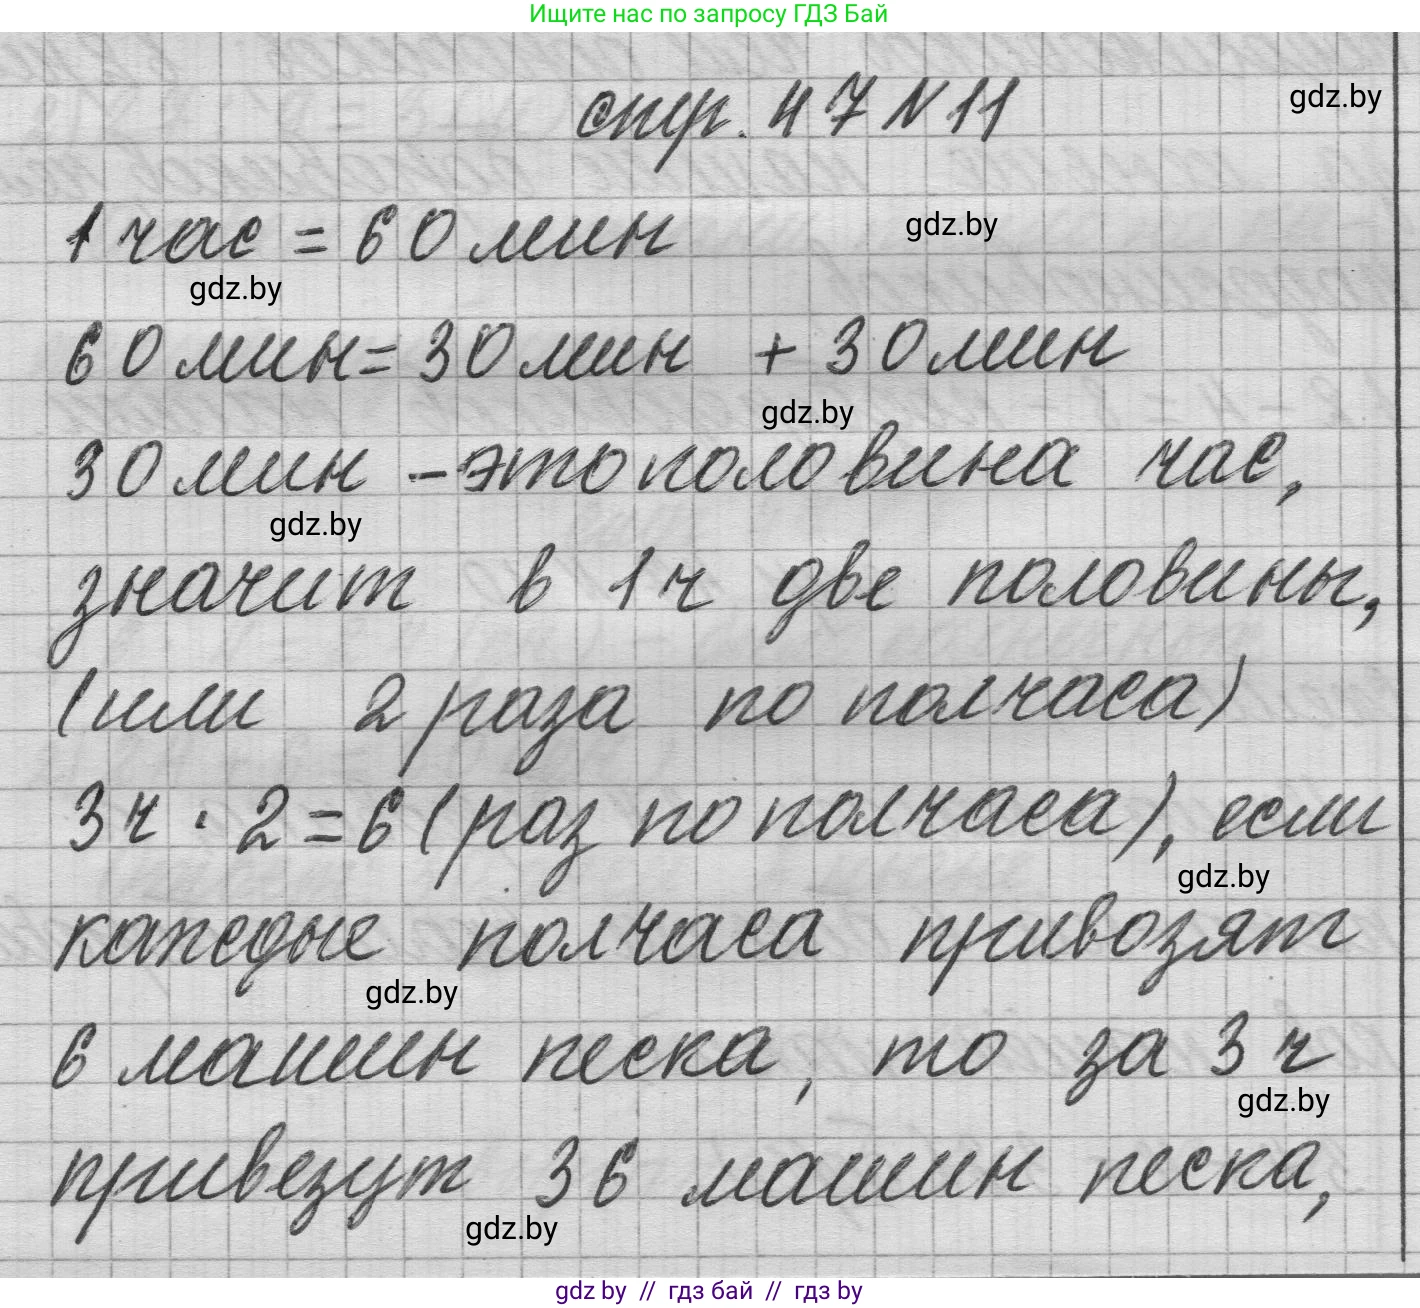 Ищите нас по запросу ГДЗ Бай
стр. 47 N 11
gdz.by
1 час = 60 мин
gdz.by
gdz.by
60 мин = 30 мин + 30 мин
gdz.by
30 мин - это половина час,
gdz.by
значит в 1 ч две половины,
(или 2 раза по полчаса)
3 ч · 2 = 6 (раз по полчаса), если
gdz.by
каждые полчаса привозят
gdz.by
6 машин песка, то за 3 ч
gdz.by
привезут 36 машин песка,
gdz.by
gdz by // гдз бай // гдз by